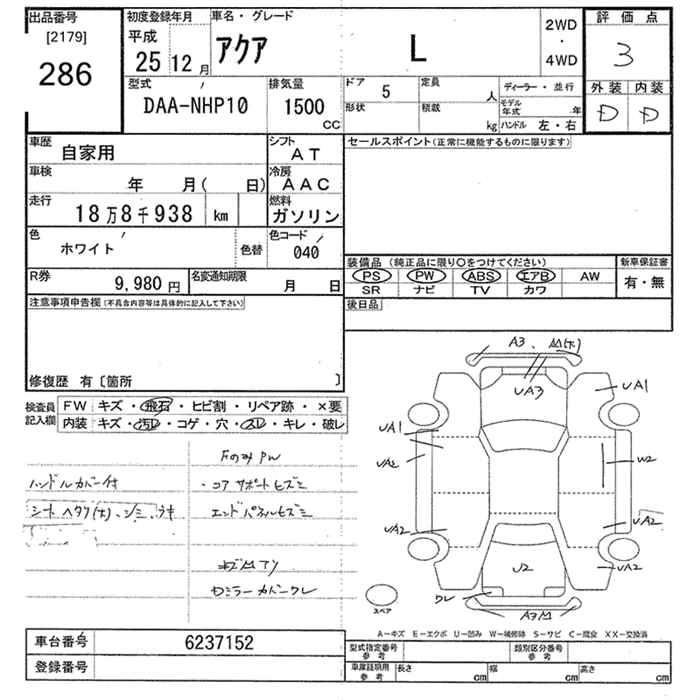 出品番号
[2179]
286
初度登録年月
平成
25 12月
車名・グレード
アクア L
2WD
・
4WD
評価点
3
外装 内装
D D
型式
DAA-NHP10
排気量
1500
CC
ドア 5
定員 人
形状
積載 kg
ディーラー・並行
モデル年式 年
ハンドル 左・右
車歴
自家用
シフト
AT
車検
年 月( 日)
冷房
AAC
走行
18万8千938 km
燃料
ガソリン
色
ホワイト
色替
色コード
040
R券
9,980円
名変通知期限
月 日
セールスポイント(正常に機能するものに限ります)
装備品(純正品に限り○をつけてください)
PS PW ABS エアB AW
SR ナビ TV カワ
新車保証書
有・無
後日品
注意事項申告欄(不具合内容等は具体的に記入して下さい)
修復歴 有〔箇所 〕
検査員
記入欄
FW キズ・飛石・ヒビ割・リペア跡・×要
内装 キズ・汚レ・コゲ・穴・スレ・キレ・破レ
Fのみ PW
ハンドルカバー付
・コアサポートヒズミ
シート ヘタリ(大)、シミ、ウキ
エンドパネルヒズミ
ミラーカバーワレ
A3
UA3
UA1
UA1
UA2
W2
UA2
UA2
UA2
U2
ワレ
スペア
A-キズ E-エクボ U-凹み W-補修跡 S-サビ C-腐食 XX-交換済
車台番号 6237152
登録番号
型式指定番号
参考
類別区分番号
参考
車庫証明用
参考
長さ cm
幅 cm
高さ cm